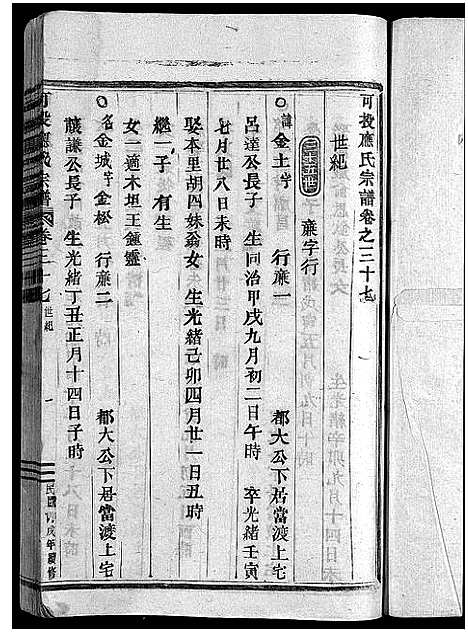 可投應氏宗譜卷之三十七
世紀
亷字行
諱金土字 行亷一 都大公下居當渡上宅
呂達公長子 生同治甲戌九月初二日午時 卒光緒壬寅
七月廿八日未時
娶本里胡四妹翁女 生光緒己卯四月廿一日丑時
繼一子 有生
女一適木坦王鍾靈
名金城字金松 行亷二 都大公下居當渡上宅
謙公長子 生光緒丁丑正月十四日子時
可投應氏宗譜 卷三十七 世紀 一 民國 戌年續修